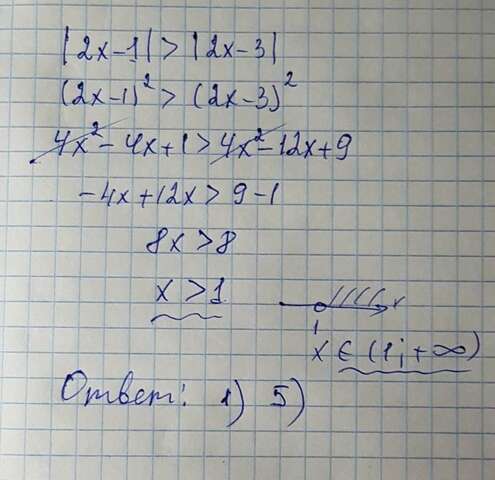 |2x-1| > |2x-3|
(2x-1)² > (2x-3)²
4x² - 4x + 1 > 4x² - 12x + 9
-4x + 12x > 9 - 1
8x > 8
x > 1
x
1
x ∈ (1; +∞)
Ответ: 1) 5)